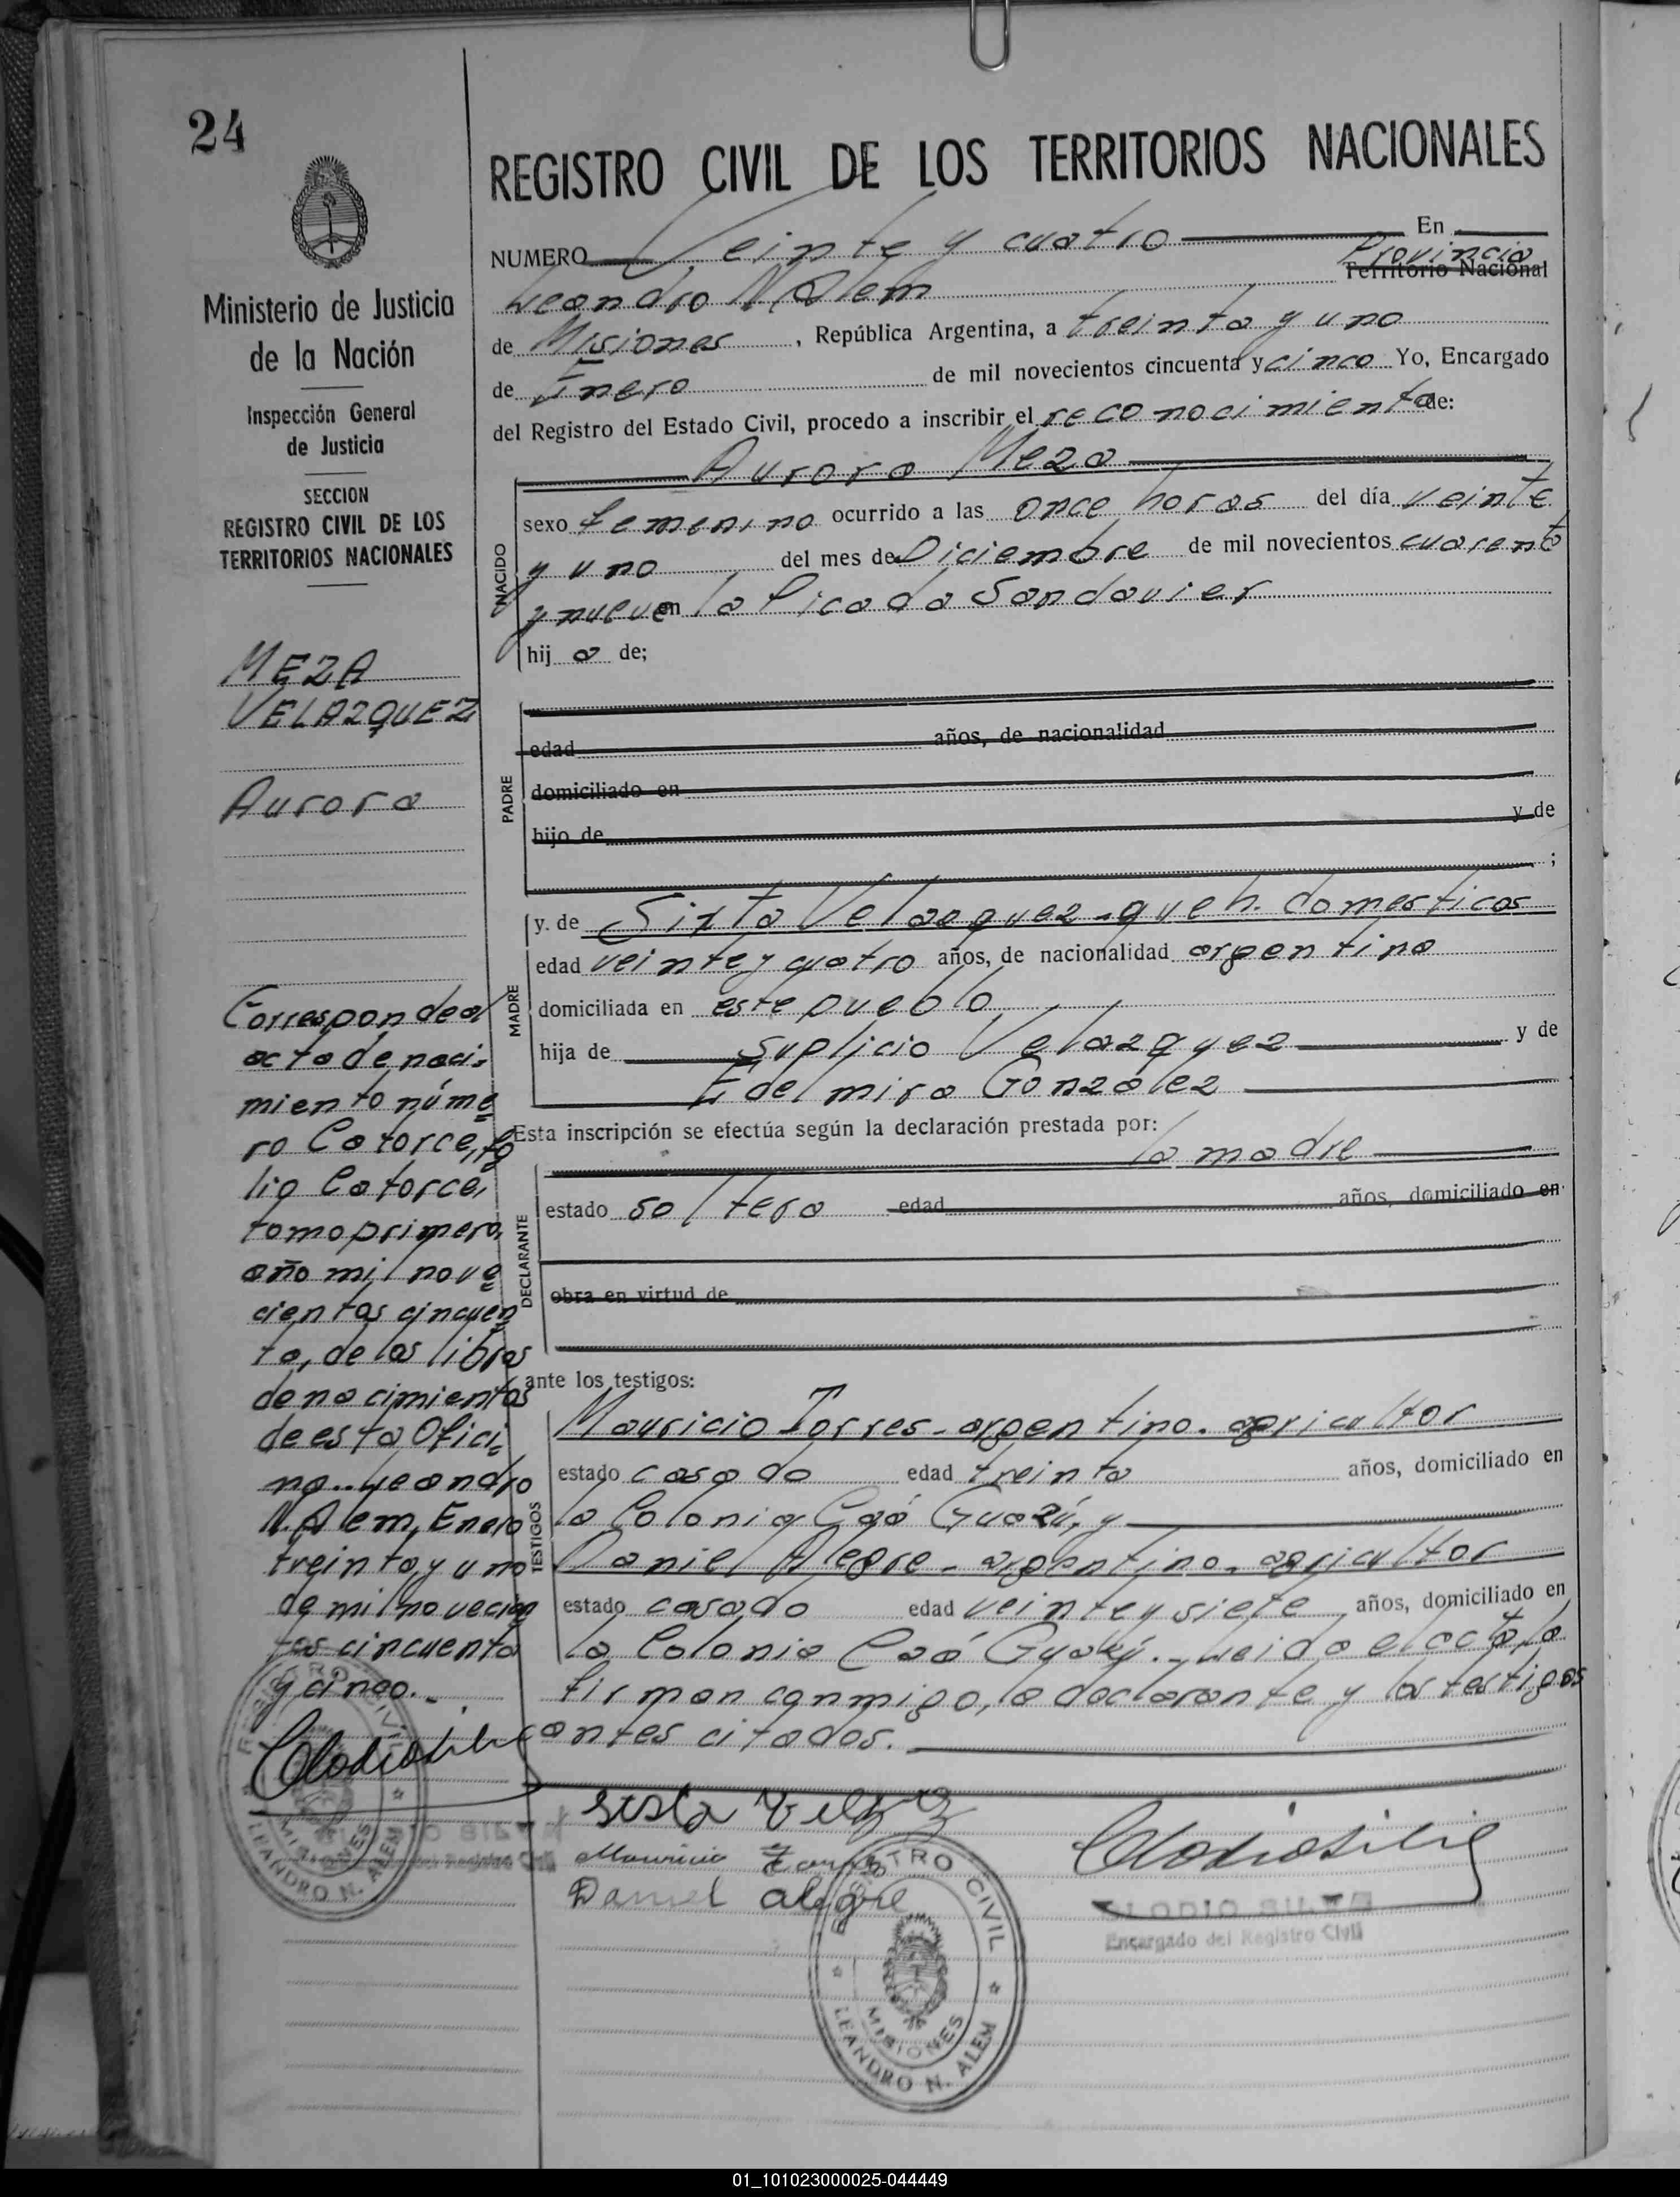 24
REGISTRO CIVIL DE LOS TERRITORIOS NACIONALES
NUMERO Veinte y cuatro En
Leandro N. Alem Provincia
Territorio Nacional
de Misiones, República Argentina, a treinta y uno
de Enero de mil novecientos cincuenta y cinco Yo, Encargado
del Registro del Estado Civil, procedo a inscribir el reconocimiento de:
Aurora Meza
NACIDO
sexo femenino ocurrido a las once horas del día veinte
y uno del mes de Diciembre de mil novecientos cuarenta
y nueve en la Picada Sandavier
hij a de;
PADRE
edad años, de nacionalidad
domiciliado en
hijo de y de
;
MADRE
y. de Sixta Velazquez - queh. domesticos
edad veinte y cuatro años, de nacionalidad argentina
domiciliada en este pueblo,
hija de Suplicio Velazquez y de
Edelmira Gonzalez
Esta inscripción se efectúa según la declaración prestada por:
la madre
DECLARANTE
estado soltera edad años, domiciliado en
obra en virtud de
ante los testigos:
TESTIGOS
Mauricio Torres - argentino. agricultor
estado casado edad treinta años, domiciliado en
la Colonia Caá Guazú, y
Daniel Alegre - argentino - agricultor
estado casado edad veinte y siete años, domiciliado en
la Colonia Caá Guazú. - Leida el acta, la
firman conmigo, la declarante y los testigos
antes citados.
Mauricio Torres
Daniel Alegre
CLODIO SILVA
Encargado del Registro Civil
REGISTRO CIVIL
MISIONES
LEANDRO N. ALEM
Ministerio de Justicia
de la Nación
Inspección General
de Justicia
SECCION
REGISTRO CIVIL DE LOS
TERRITORIOS NACIONALES
MEZA
VELAZQUEZ
Aurora
Corresponde al
acta de naci-
miento núme
ro Catorce, fo
lio Catorce,
tomo primero,
año mil nove
cientos cincuen
ta, de los libros
de nacimientos
de esta Ofici-
na.. Leandro
N. Alem, Enero
treinta y uno
de mil novecien
tos cincuenta
y cinco.-
REGISTRO CIVIL
MISIONES
LEANDRO N. ALEM
01_101023000025-044449